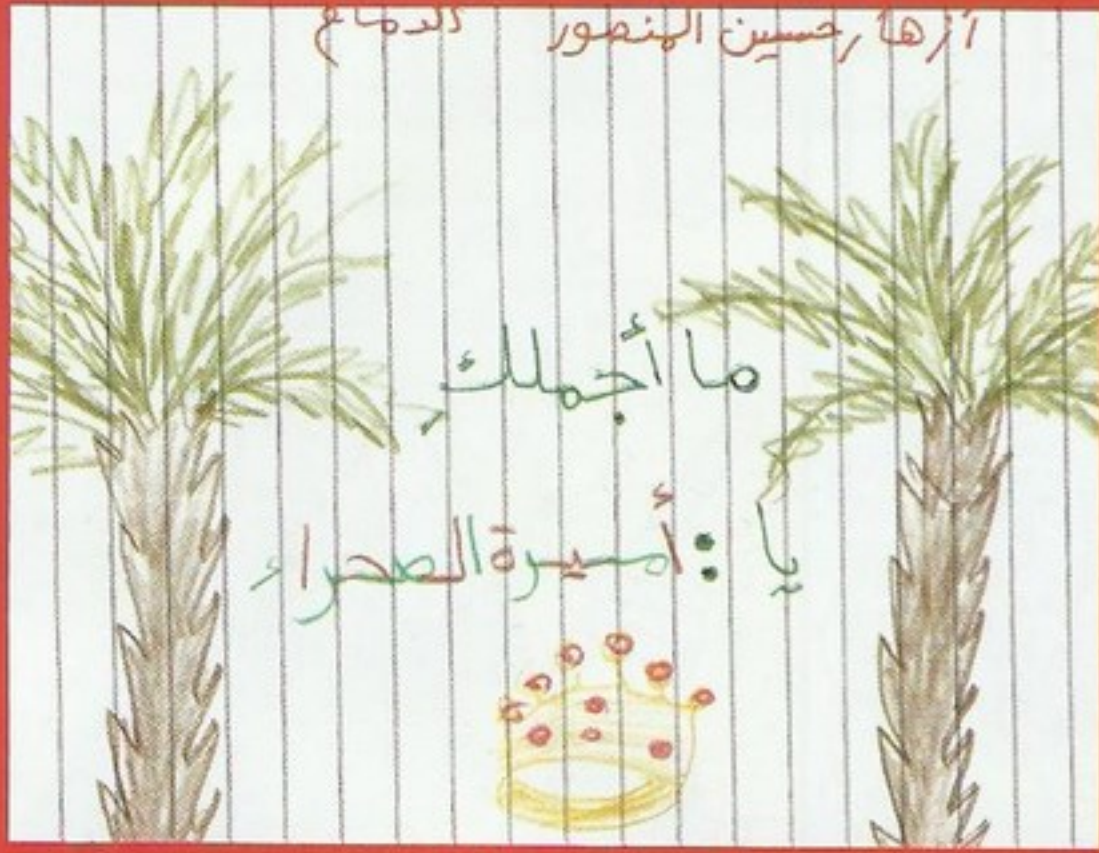 أزهار حسين المنصور الدمام
ما أجملكِ
يا : أميرة الصحراء